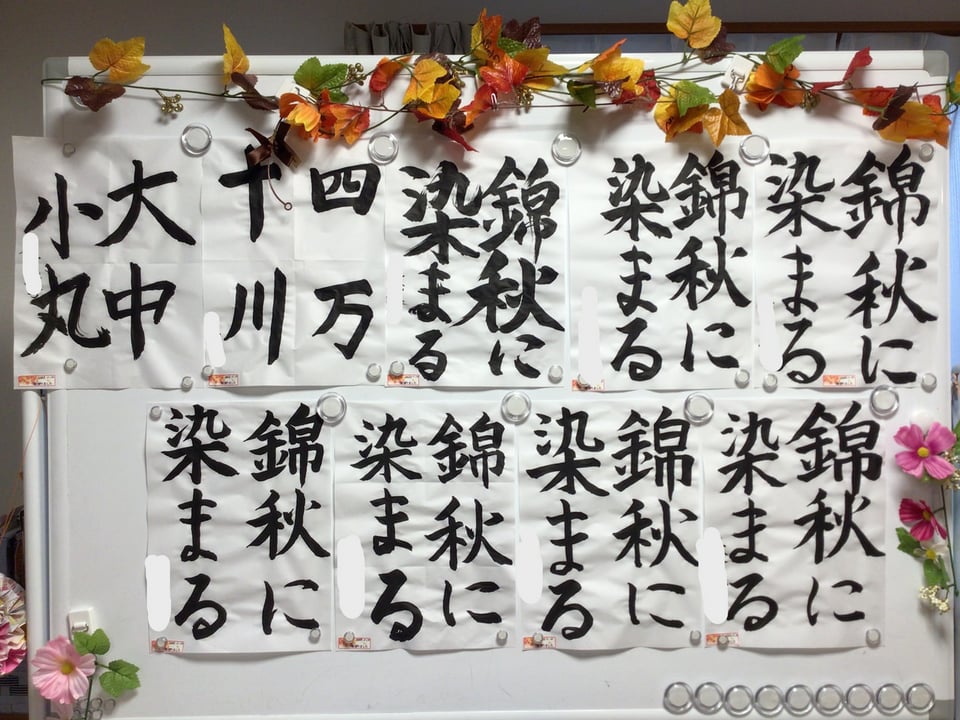 錦秋に
染まる
錦秋に
染まる
錦秋に
染まる
四万
十川
大中
小丸
錦秋に
染まる
錦秋に
染まる
錦秋に
染まる
錦秋に
染まる